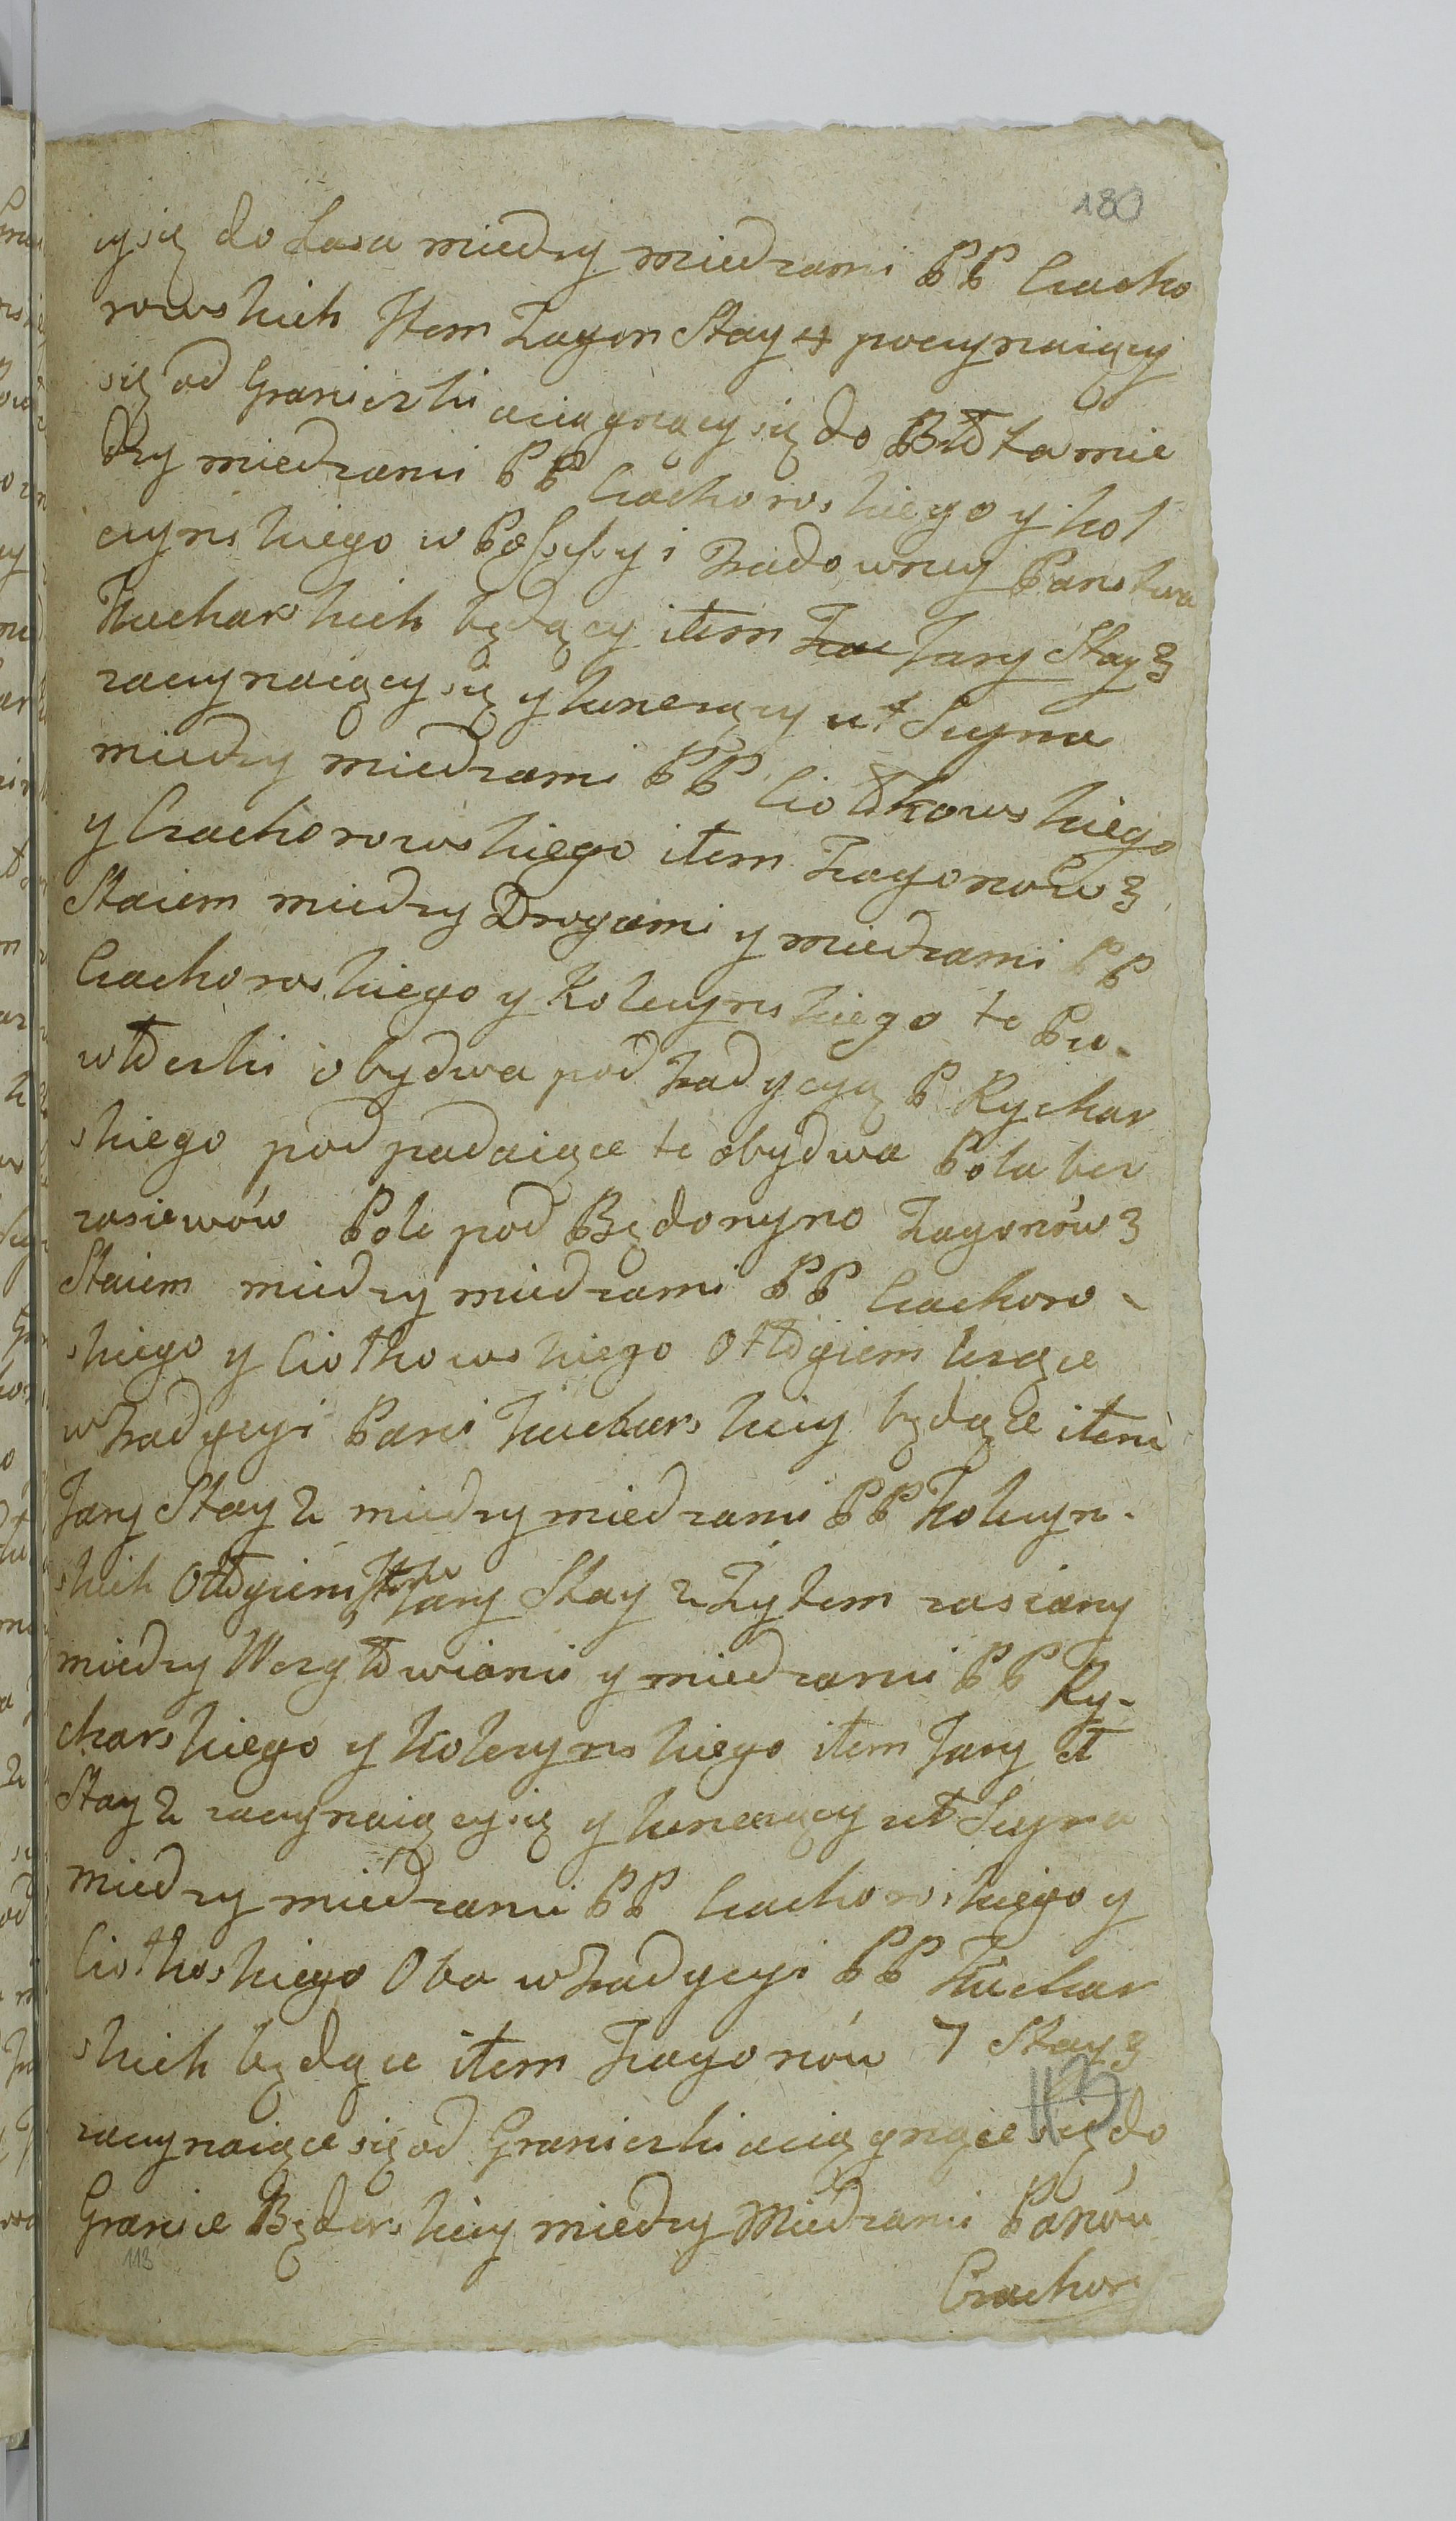 180
cy się do Lasa miedzy miedzami PP Czacho
rowskich Item Zagon Stay 4 poczynaiący
się od Graniczki aciągnący się do Błota mie
dzy miedzami PP Czachorowskiego y Kol
czynskiego w Possessyi Zadowney Panstwa
Kucharskich będący item Jary Stay 3
zaczynaiący się y kunczący ut Supra
miedzy miedzami PP Ciołkowskiego
y Czachorowskiego item Zagonów 3
Staiem miedzy Drogami y miedzami PP
Czachorowskiego y Kolczynskiego te Pu-
włoczki obydwa pod tradycyą P Rychar
skiego podpadaiące te obydwa Pola bez
zasiewów Pole pod Będonyno Zagonów 3
Staiem miedzy miedzami PP Czachoro-
skiego y Ciołkowskiego Odłogiem leżące
w tradycyi Pani Kucharskiey będące item
Jary Stay 2 miedzy miedzami PP Kolczyn-
skich Odłogiem Item Jary Stay 2 Żytem zasiany
miedzy Wezgłowiami y miedzami PP Ry-
charskiego y Kolczynskiego item Jary
Stay 2 zaczynaiący się y kunczący ut Supra
miedzy miedzami PP Czachorowskiego y
Ciołkoskiego Oba w tradycyi PP Kuchar
skich będące item Zagonów 7 Stay 3
zaczynaiące się od Graniczki aciągnące się do
Granice Będerskiey miedzy Miedzami Panów
Czachor
113
113